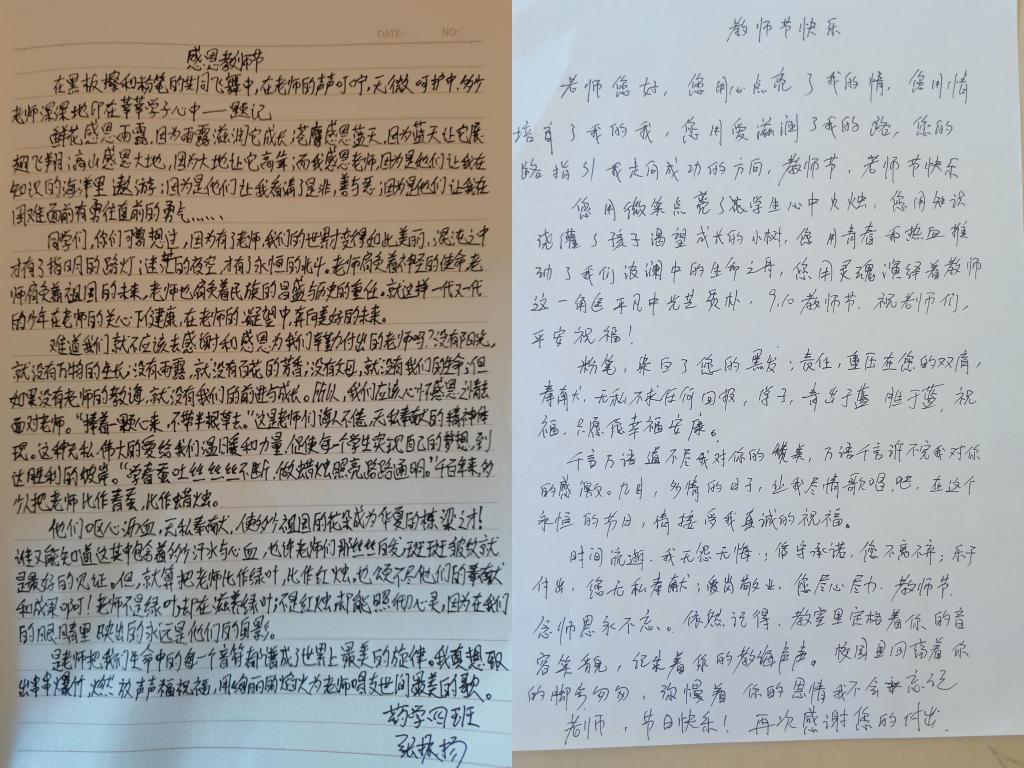 DATE: NO:
感恩教师节
在黑板擦和粉笔的共同飞舞中,在老师的声声叮咛,无微呵护中,多少
老师深深地印在莘莘学子心中——题记
鲜花感恩雨露,因为雨露滋润它成长;苍鹰感恩蓝天,因为蓝天让它展
翅飞翔;高山感恩大地,因为大地让它高耸;而我感恩老师,因为是他们让我在
知识的海洋里遨游;因为是他们让我看清了是非,善与恶;因为是他们让我在
困难面前有勇往直前的勇气……
同学们,你们可曾想过,因为有了老师,我们的世界才变得如此美丽,混沌之中
才有了指明的路灯;迷茫的夜空,才有了永恒的北斗。老师肩负着神圣的使命,老
师肩负着祖国的未来,老师也肩负着民族的昌盛与历史的重任。就这样一代又一代
的少年在老师的关心下健康,在老师的凝望中,奔向美好的未来。
难道我们就不应该去感谢和感恩为我们辛勤付出的老师吗?没有阳光,
就没有万物的生长;没有雨露,就没有百花的芳香;没有父母,就没有我们的生命;但
如果没有老师的教诲,就没有我们的前进与成长。所以,我们应该心怀感恩之情去
面对老师。“捧着一颗心来,不带半根草去。”这是老师们诲人不倦,无私奉献的精神体
现。这种无私,伟大的爱给我们温暖和力量,促使每个学生实现自己的梦想,到
达胜利的彼岸。“学春蚕吐丝丝丝不断,做蜡烛照亮路路通明。”千百年来,多
少人把老师比作春蚕,比作蜡烛。
他们呕心沥血,无私奉献,使多少祖国的花朵成为华夏的栋梁之才!
谁又能知道这其中包含着多少汗水与心血,也许老师们那丝丝白发,斑斑皱纹就
是最好的见证。但,就算把老师比作绿叶,比作红烛,也颂不尽他们的奉献
和成果呵!老师不是绿叶,却在滋养绿叶;不是红烛,却能照彻心灵,因为在我们
的眼睛里映出的永远是他们的身影。
是老师把我们生命中的每一个音符都谱成了世界上最美的旋律。我真想取
出串串爆竹,燃放声声福祝福,用绚丽的焰火为老师唱支世间最美的歌。
药学四班
张振扬
教师节快乐
老师您好,您用心点亮了我的情,您用情
培育了我的我,您用爱滋润了我的路,您的
路指引我走向成功的方向,教师节,老师节快乐
您用微笑点亮了花学生心中火烛,您用知识
浇灌了孩子渴望成长的小树,您用青春和热血推
动了我们波澜中的生命之舟,您用灵魂演绎着教师
这一角色平凡中光芒质朴,9.10教师节,祝老师们,
平安祝福!
粉笔,染白了您的黑发;责任,重压在您的双肩,
奉献,无私不求任何回报,学子,青出于蓝胜于蓝,祝
福,只愿您幸福安康。
千言万语道不尽我对你的赞美,万语千言诉不完我对你
的感激。九月,多情的日子,让我尽情歌唱吧,在这个
永恒的节日,请接受我真诚的祝福。
时间流逝,我无怨无悔;信守承诺,您不离不弃;乐于
付出,您无私奉献;爱岗敬业,您尽心尽力,教师节,
念师恩永不忘。依然记得,教室里定格着你的音
容笑貌,记录着你的教诲声声。校园里回荡着你
的脚步匆匆,弥漫着你的恩情我不会忘记
老师,节日快乐!再次感谢您的付出